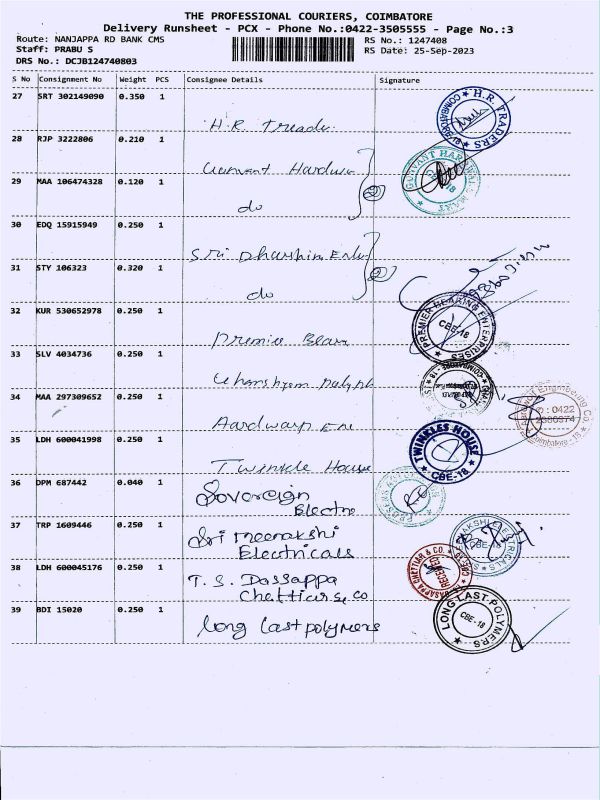 THE PROFESSIONAL COURIERS, COIMBATORE
Delivery Runsheet - PCX - Phone No.:0422-3505555 - Page No.:3
Route: NANJAPPA RD BANK CMS
RS No.: 1247408
Staff: PRABU S
RS Date: 25-Sep-2023
DRS No.: DCJB124740803
S No Consignment No Weight PCS Consignee Details Signature
27 SRT 302149090 0.350 1
H.R Treade
H.R. TRADERS
28 RJP 3222806 0.210 1
Gunvant Hardwa
GUNVANT HARDWARE MART
29 MAA 106474328 0.120 1
do
30 EDQ 15915949 0.250 1
Sri Dharshini Ente
31 STY 106323 0.320 1
do
32 KUR 530652978 0.250 1
Premier Bear
PREMIER BEARING ENTERPRISES
CBE-18
33 SLV 4034736 0.250 1
34 MAA 297309652 0.250 1
Aardwarp En
Engineering Co.
: 0422
2380374
Coimbatore - 18
35 LDH 600041998 0.250 1
Twinkle House
TWINKLES HOUSE
CBE-18
36 DPM 687442 0.040 1
Sovereign
Electro
37 TRP 1609446 0.250 1
Sri meenakshi
Electricals
CBE-18
38 LDH 600045176 0.250 1
T. S. Dassappa
Chettiar & Co
DASAPPA CHETTIAR & CO.
RECEIVED
39 BDI 15020 0.250 1
long last polymers
LONG LAST POLYMERS
CBE-18